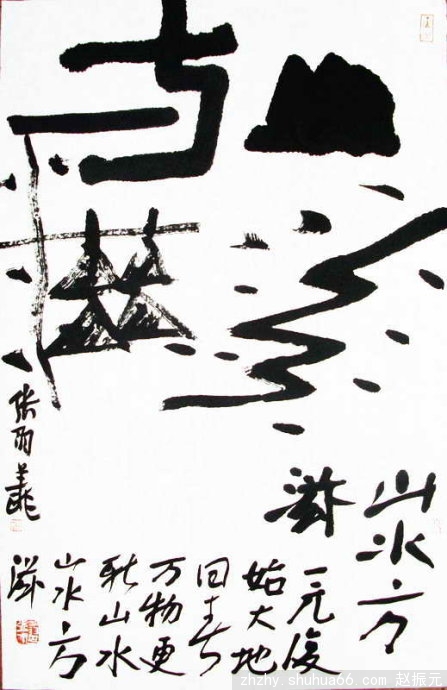 山水
方滋
山水方
滋
一元復
始大地
回春
万物更
新山水
山水方
滋
zhzhy.shuhua66.com 赵振元